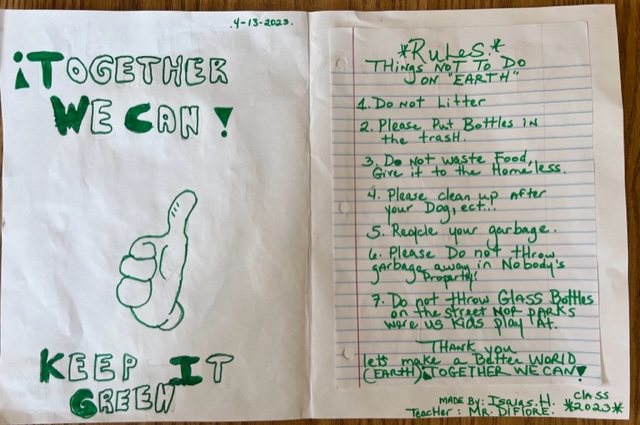 .4-13-2023.
¡TOGETHER
WE CAN!
KEEP IT
GREEN
*RULES*
THINGS NOT TO DO
ON "EARTH"
1. Do Not Litter
2. Please Put Bottles in
the trash.
3. Do not waste Food,
Give it to the Homeless.
4. Please clean up After
your Dog, ect...
5. Recycle your garbage.
6. Please Do not throw
garbage away in Nobody's
Property!
7. Do not throw GLASS Bottles
on the street NOR PARKS
were us Kids play At.
Thank you
lets make a Better WORLD
(EARTH) ¡TOGETHER WE CAN!
MADE By: Isaias.H.
Teacher: MR. DIFIORE.
CLASS
*2023*